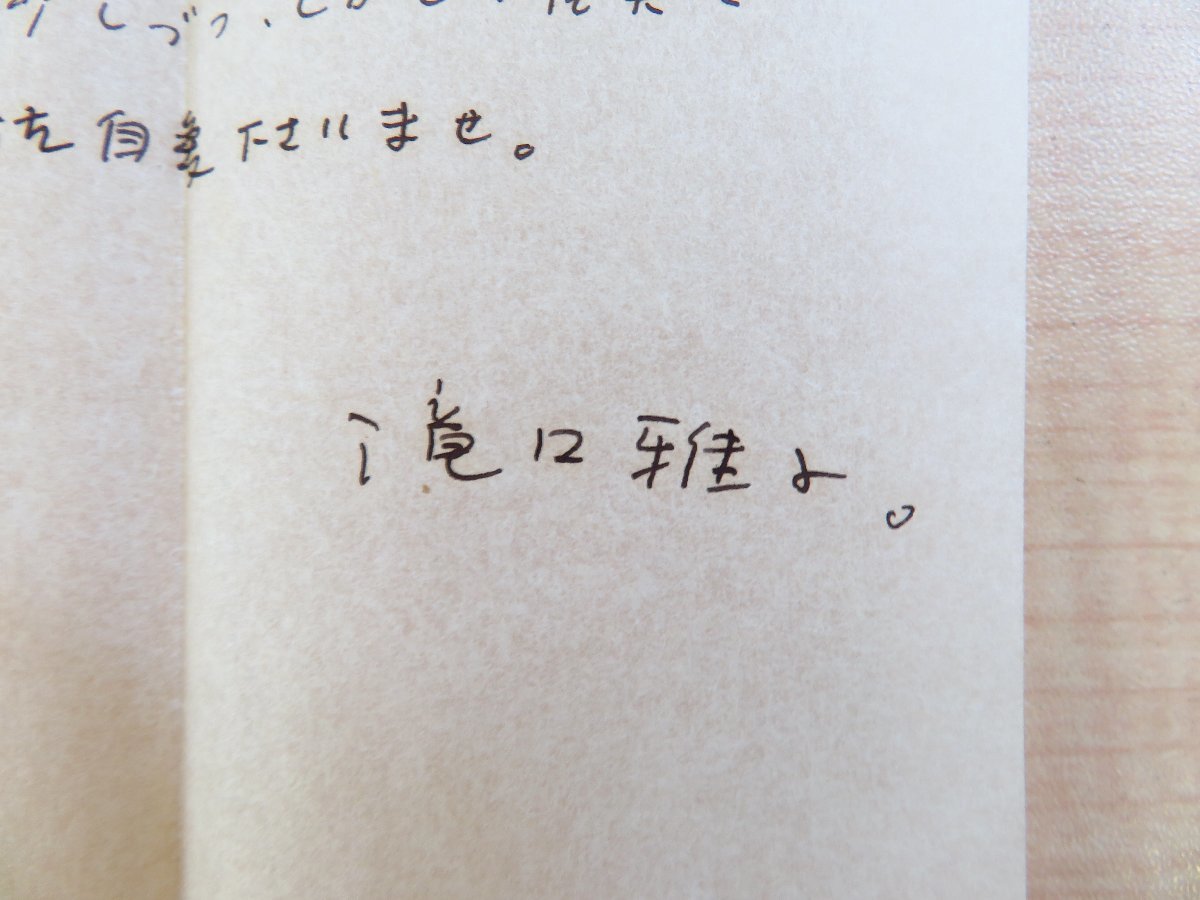 しづつ、しかし
を自愛下さいませ。
滝口雅子。